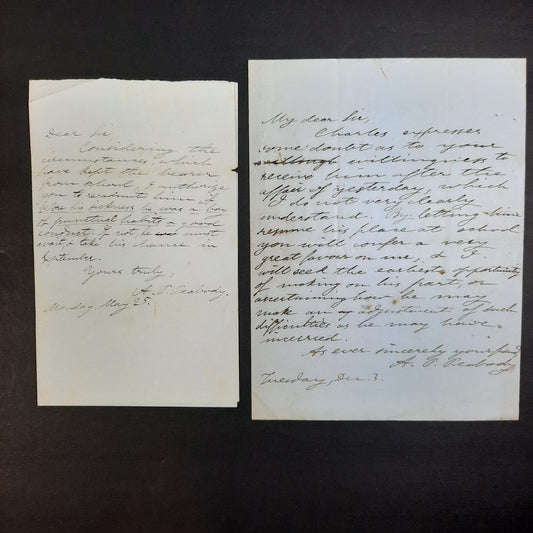 Dear Sir,
Considering the
circumstances, which
have kept the bearer
from school, I authorize
you to readmit him if
before his sickness he was a boy
of punctual habits & good
conduct. If not, he must
wait & take his chance in
September.
Yours truly,
A. P. Peabody.
Monday May 25.
My dear Sir,
Charles expresses
some doubt as to your
willingness to
receive him after the
affair of yesterday, which
I do not very clearly
understand. By letting him
resume his place at school
you will confer a very
great favour on me, & I
will seek the earliest opportunity
of making on his part, or
ascertaining how he may
make an adjustment of such
difficulties as he may have
incurred.
As ever sincerely your friend
A. P. Peabody
Tuesday, Dec. 3.